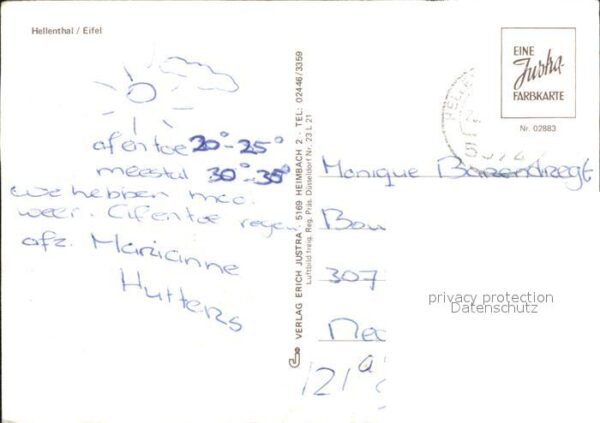 Hellenthal / Eifel
af en toe 20° - 25°
meestal 30° - 35°
we hebben moo.
weer. Af en toe regen
afz. Marianne
Hutters
VERLAG ERICH JUSTRA · 5169 HEIMBACH 2 · TEL: 02446/3359
Luftbild freig. Reg. Präs. Düsseldorf Nr. 23 L 21
EINE
Justra
FARBKARTE
Nr. 02883
Monique Barendregt
Bou
307
Nec
121a
privacy protection
Datenschutz